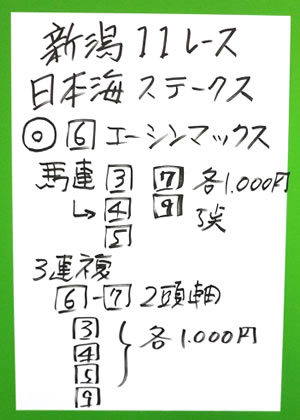 新潟11レース
日本海ステークス
◎ 6 エーシンマックス
馬連 3 7 各1.000円
↳ 4 9 5点
5
3連複
6-7 2頭軸
3
4
5
9
各1.000円